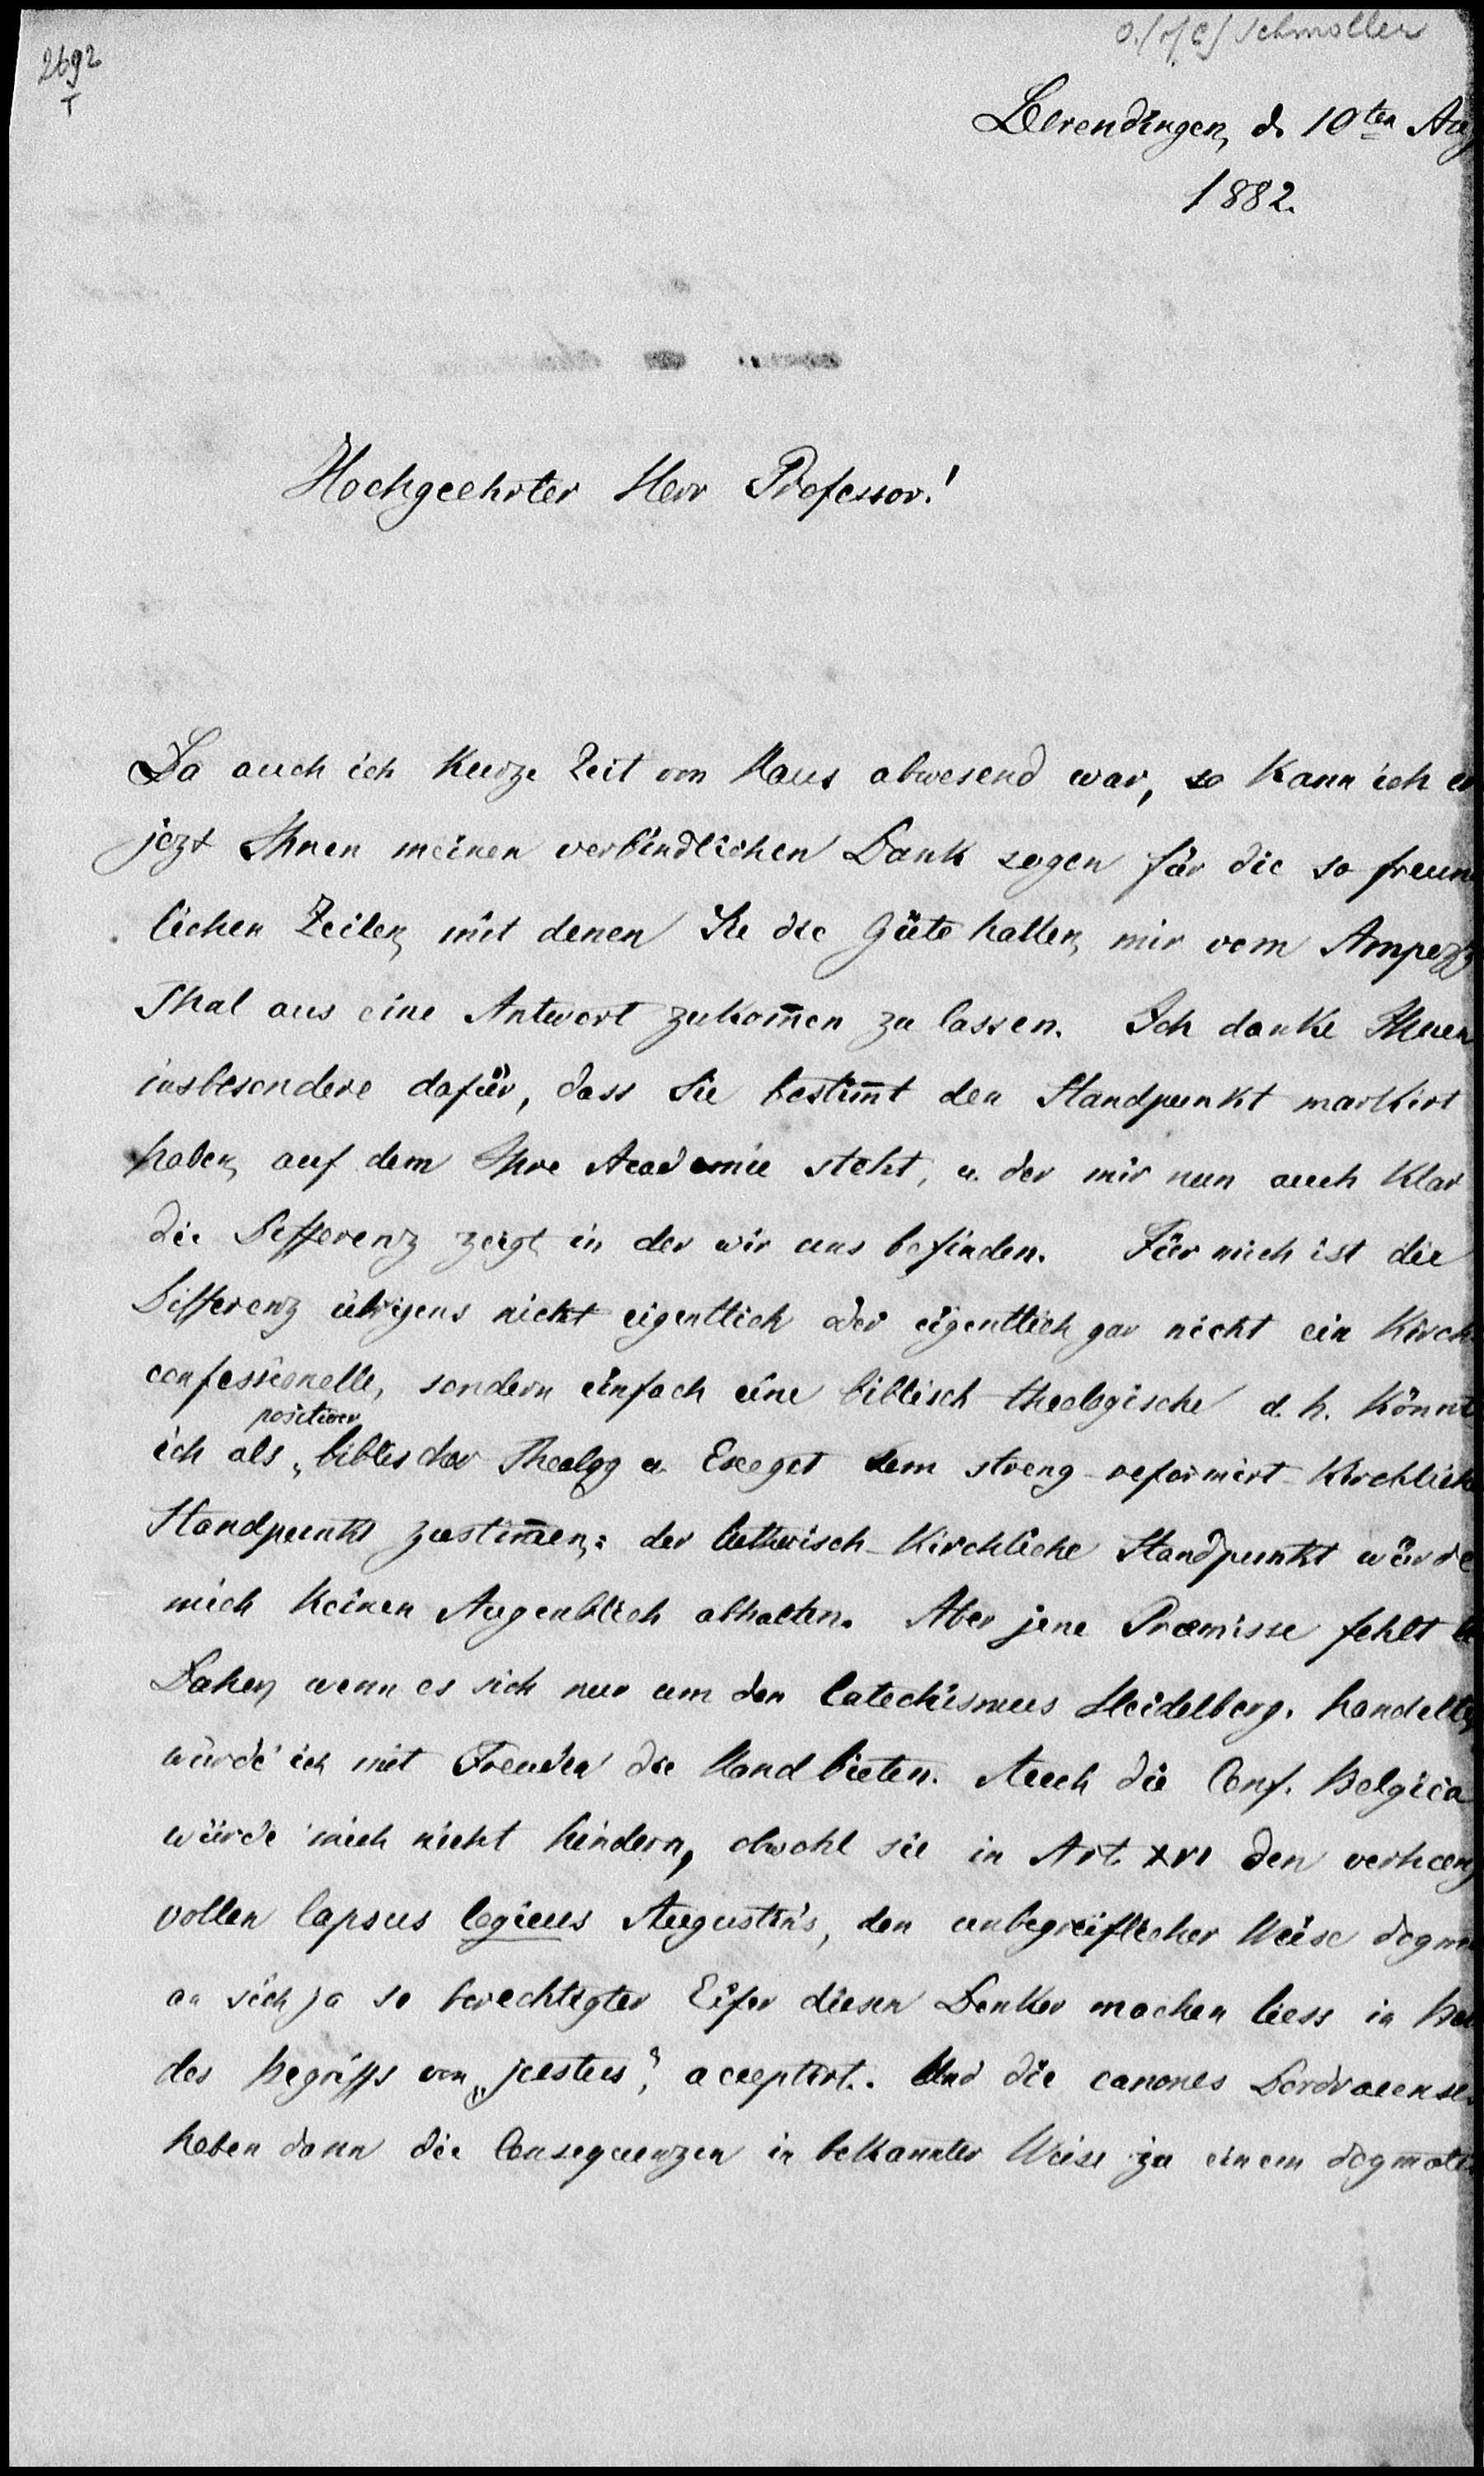 O. (of C) Schmoller
2692
T
Derendingen, d. 10ten Aug
1882.
Hochgeehrter Herr Professor!
Da auch ich kurze Zeit von Haus abwesend war, so kann ich er
jezt Ihnen meinen verbindlichen Dank sagen für die so freun
lichen Zeilen, mit denen Sie die Güte hatten, mir vom Ampezz
Thal aus eine Antwort zukom̄en zu lassen. Ich danke Ihnen
insbesondere dafür, dass Sie bestim̄t den Standpunkt markirt
haben, auf dem Ihre Academie steht, u. der mir nun auch klar
die Differenz zeigt, in der wir uns befinden. Für mich ist die
Differenz übrigens nicht eigentlich oder eigentlich gar nicht ein kirch
confessionelle, sondern einfach eine biblisch-theologische d. h. könnt
positiver
ich als biblischer Theolog u. Exeget dem streng-reformirt-kirchlich
Standpunkt zustim̄en: der lutherisch-kirchliche Standpunkt würde
mich keinen Augenblick abhalten. Aber jene Præmisse fehlt
Daher, wenn es sich nur um den Catechismus Heidelberg. handelte,
würde ich mit Freuden die Hand bieten. Auch die Conf. Belgica
würde mich nicht hindern, obwohl sie in Art. XVI den verhæng
vollen lapsus logicus Augustin's, den unbegreiflicher Weise dogm
an sich ja so berechtigter Eifer diesen Denker machen liess in
des Begriffs von „justus", acceptirt. Und die canones Dordracenses
haben dann die Consequenzen in bekannter Weise zu einem dogmati